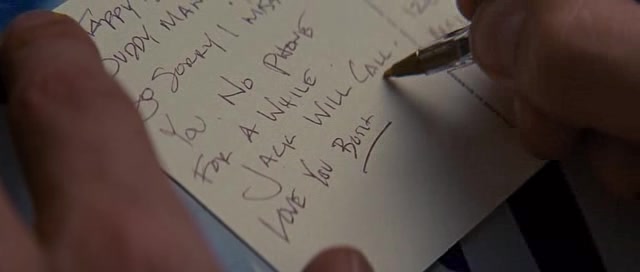 APPY
UDDY MAN
SO SORRY I MISS
YOU. NO PHONE
FOR A WHILE.
JACK WILL CALL.
LOVE YOU BOTH